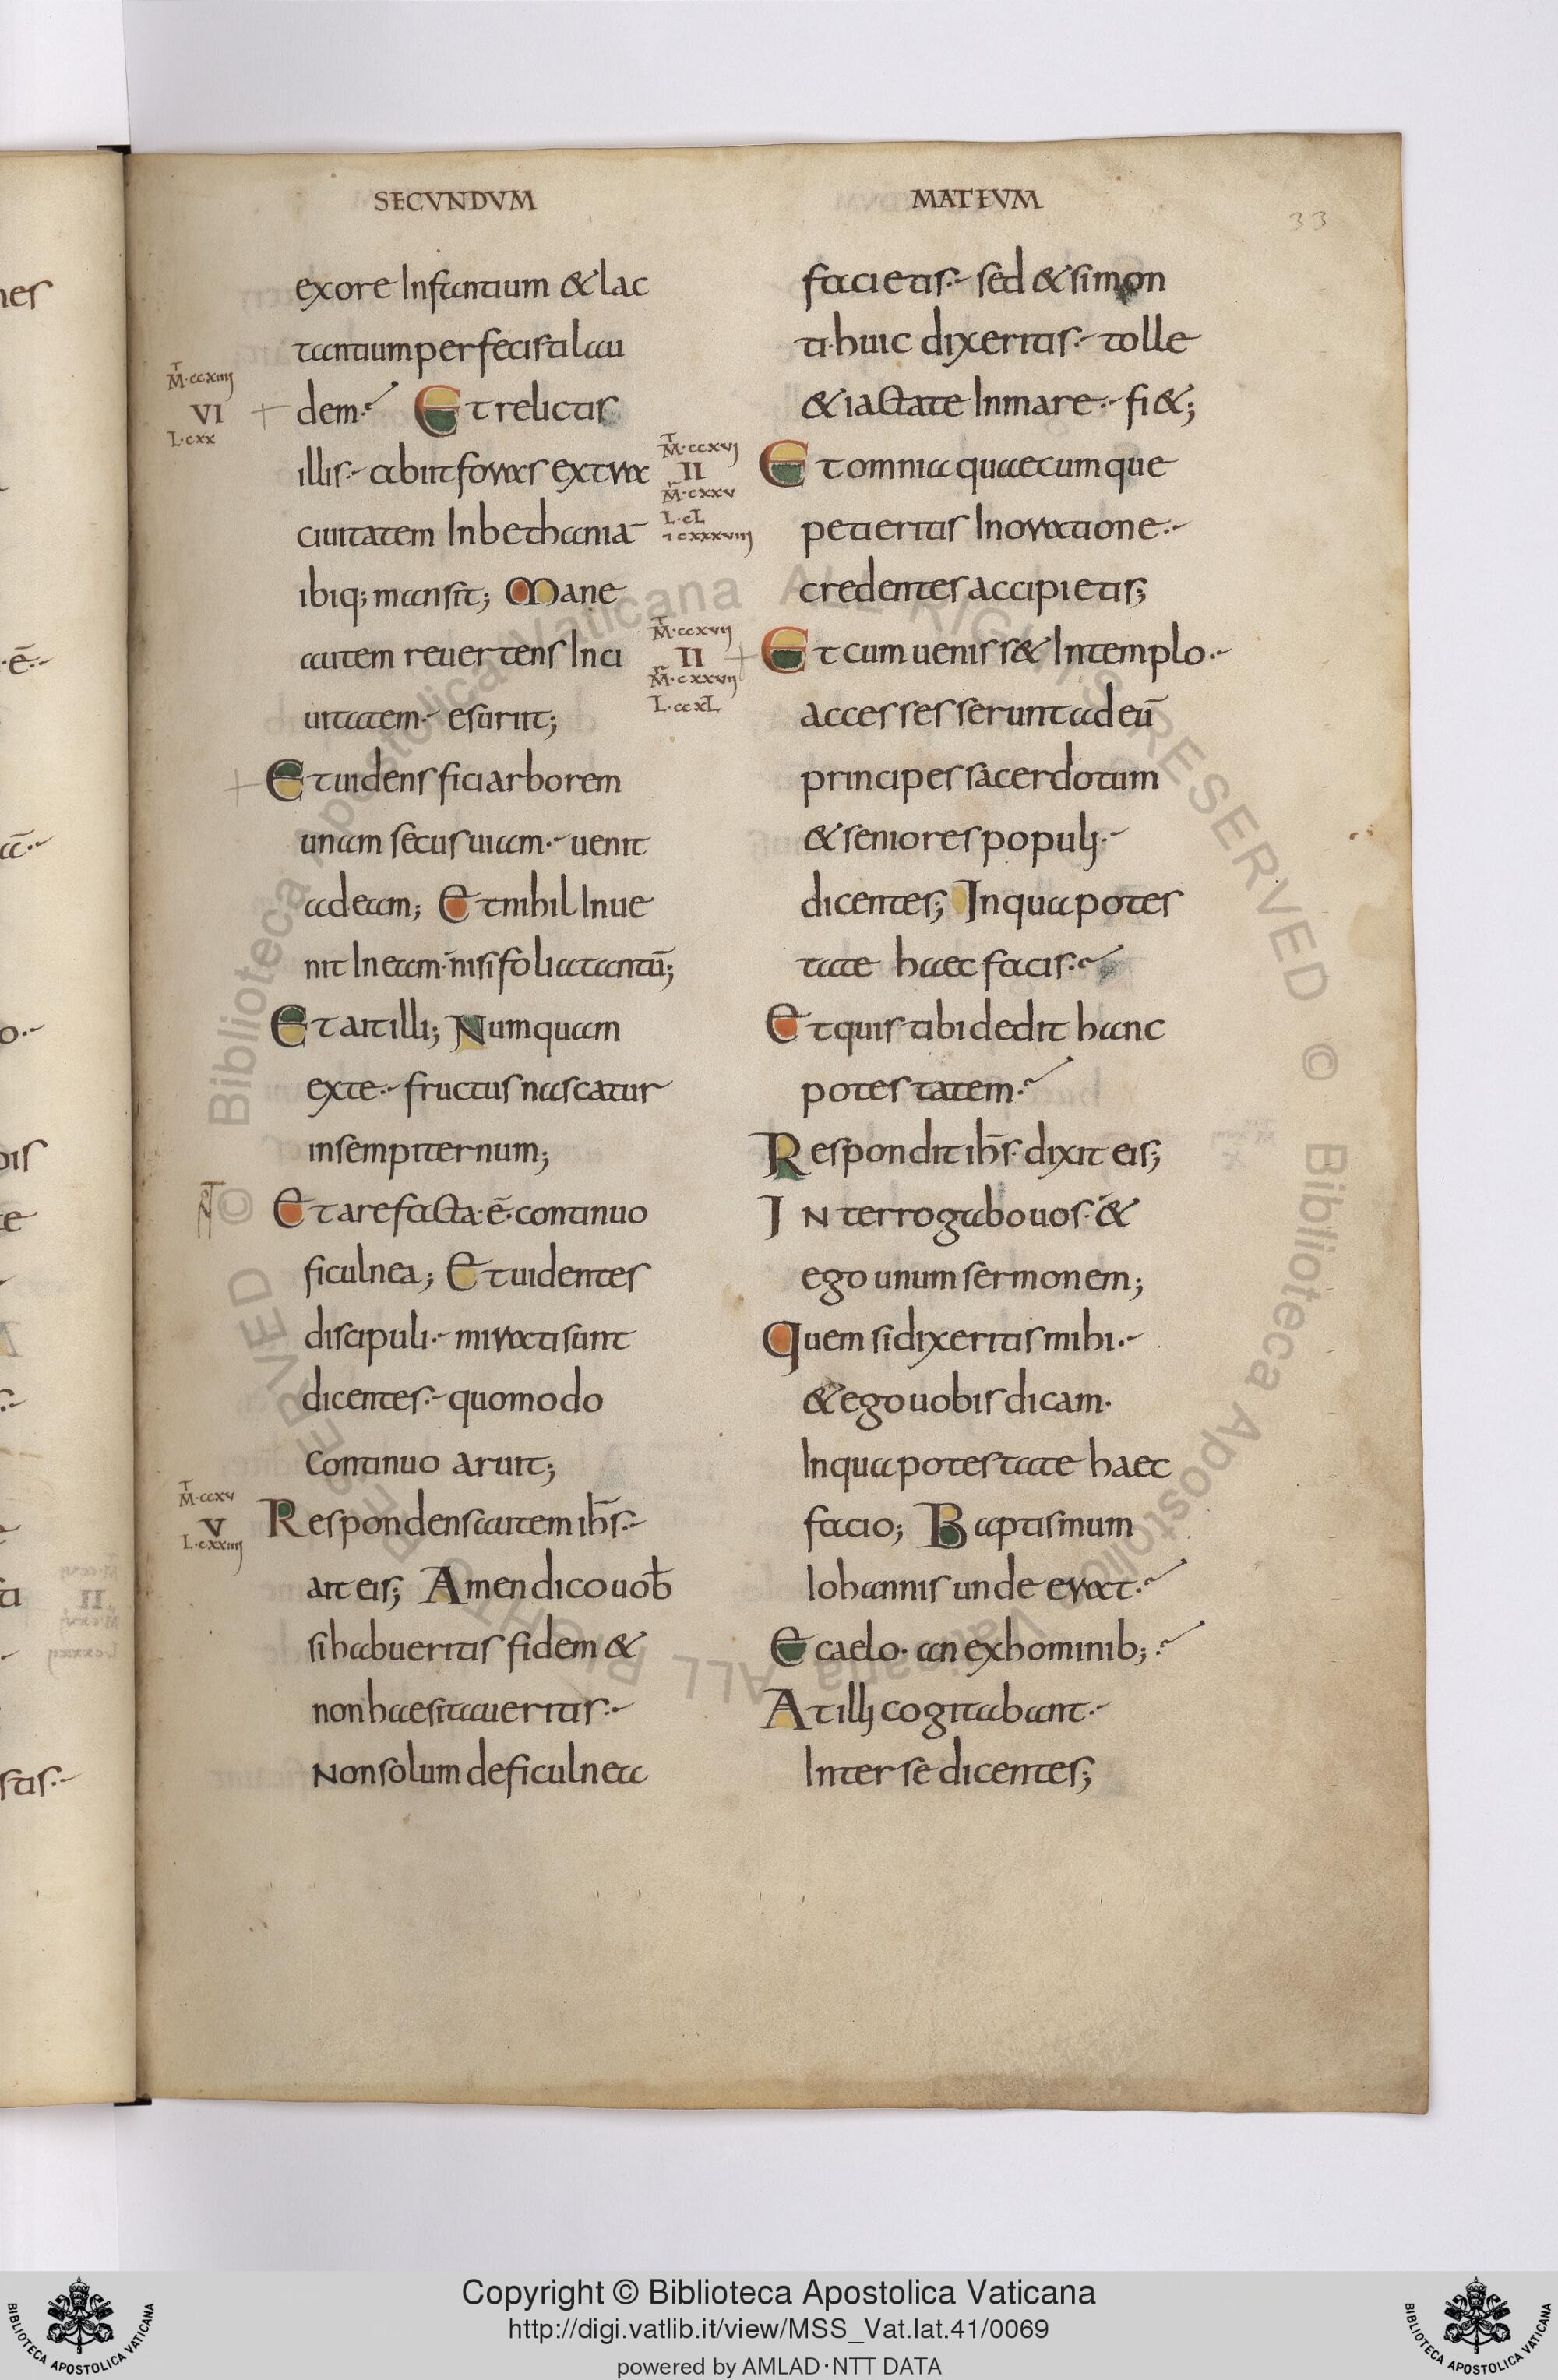 SECVNDVM
exore Infantium & lac
tantium perfecistilau
dem. Et relictis
illis. abiit foras extra
ciuitatem In bethania̅
ibiq; mansit; Mane
autem reuertens In ci
uitatem. esuriit;
Et uidens fici arborem
unam secus uiam. uenit
ad eam; Et nihil Inue
nit In eam. nisi folia tantu̅;
Et ait illi; Numquam
exte. fructus nascatur
insempiternum;
Et arefacta. e̅. continuo
ficulnea; Et uidentes
discipuli. mirati sunt
dicentes. quomodo
Continuo aruit;
Respondens autem ih̅s.
ait eis; Amen dico uob̅
si habueritis fidem &
non haesitaueritis.
Non solum de ficulnea
M̅·ccxiiij
VI
L·cxx
M̅·ccxv
V
L·cxxiiij
MATEVM
33
facietis. sed & si mon
ti huic dixeritis. tolle
& iactate In mare. fi&;
Et omnia quaecumque
petieritis In oratione.
credentes accipietis;
Et cum uenisset In templo.
accesseserunt ad eu̅
principes sacerdotum
& seniores populj.
dicentes; In qua potes
tate haec facis.
Et quis tibi dedit hanc
potestatem.
Respondit ih̅s. dixit eis;
INterrogabo uos. &
ego unum sermonem;
Quem si dixeritis mihi.
& ego uobis dicam.
In qua potestate haec
facio; Baptismum
Iohannis unde erat.
E caelo. an ex hominib;.
At illj cogitabant.
Inter se dicentes;
M̅·ccxvj
II
M̅·cxxv
L·cL
M̅·ccxvij
II
M̅·cxxvij
L·ccxL
© Biblioteca Apostolica Vaticana ALL RIGHTS RESERVED
© Biblioteca Apostolica Vaticana ALL RIGHTS RESERVED
Copyright © Biblioteca Apostolica Vaticana
http://digi.vatlib.it/view/MSS_Vat.lat.41/0069
powered by AMLAD·NTT DATA
BIBLIOTECA APOSTOLICA VATICANA
BIBLIOTECA APOSTOLICA VATICANA